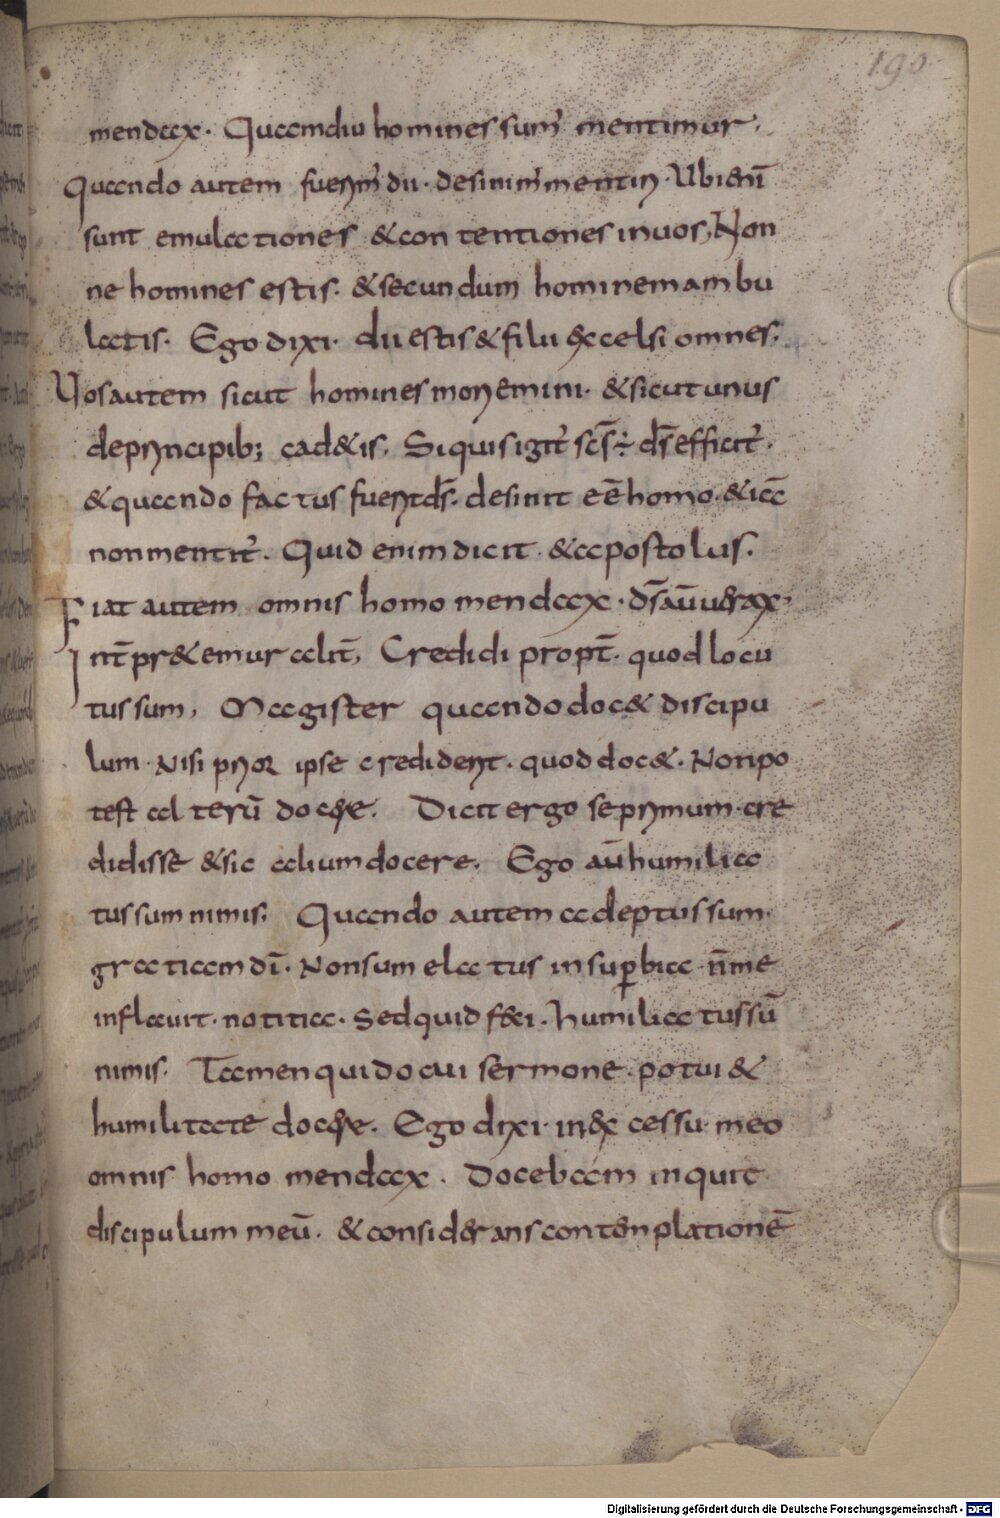 190
mendax. Quamdiu homines sum᾽ mentimur.
Quando autem fuerim᾽ dii. desinim᾽ mentiri. Ubi eni᷄
sunt emulationes & contentiones inuos, Non
ne homines estis. & secundum hominem ambu
latis. Ego dixi. dii estis & filii excelsi omnes.
Vos autem sicut homines moriemini. & sicut unus
de principib; cad&is. Siquis igit᾽ sc̄s ÷ ds̄ efficit᾽.
& quando factus fuerit ds̄. desinit eē homo. & iā
non mentit᾽. Quid enim dicit & apostolus.
Fiat autem omnis homo mendax. ds̄ aū uerax.
Int̄pr&emur alit̄, Credidi propt̄. quod locu
tus sum, Magister quando doc& discipu
lum. Nisi prior ipse crediderit. quod doc&. Non po
test alterū docere. Dicit ergo se primum cre
didisse & sic alium docere. Ego aū humilia
tus sum nimis. Quando autem adeptus sum.
gratiam dī. Non sum elatus in sup̱bia. n̄ me
inflauit. notitia. Sed quid feci. humiliatus sū
nimis. Tamen qui docui sermone. potui &
humilitate docere. Ego dixi. in excessu meo
omnis homo mendax. Docebam inquit
discipulum meū. & considerans contemplationē
Digitalisierung gefördert durch die Deutsche Forschungsgemeinschaft - DFG